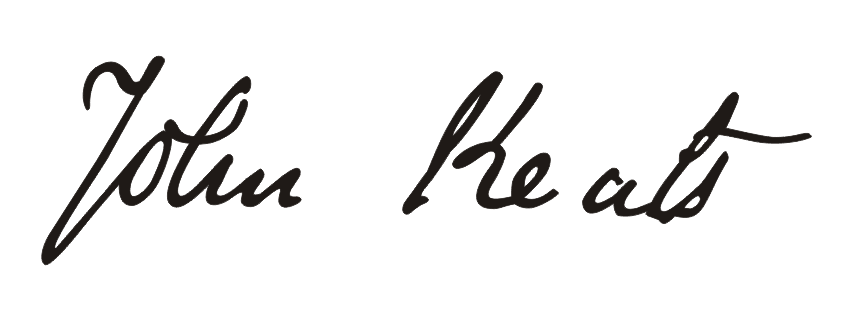 John Keats